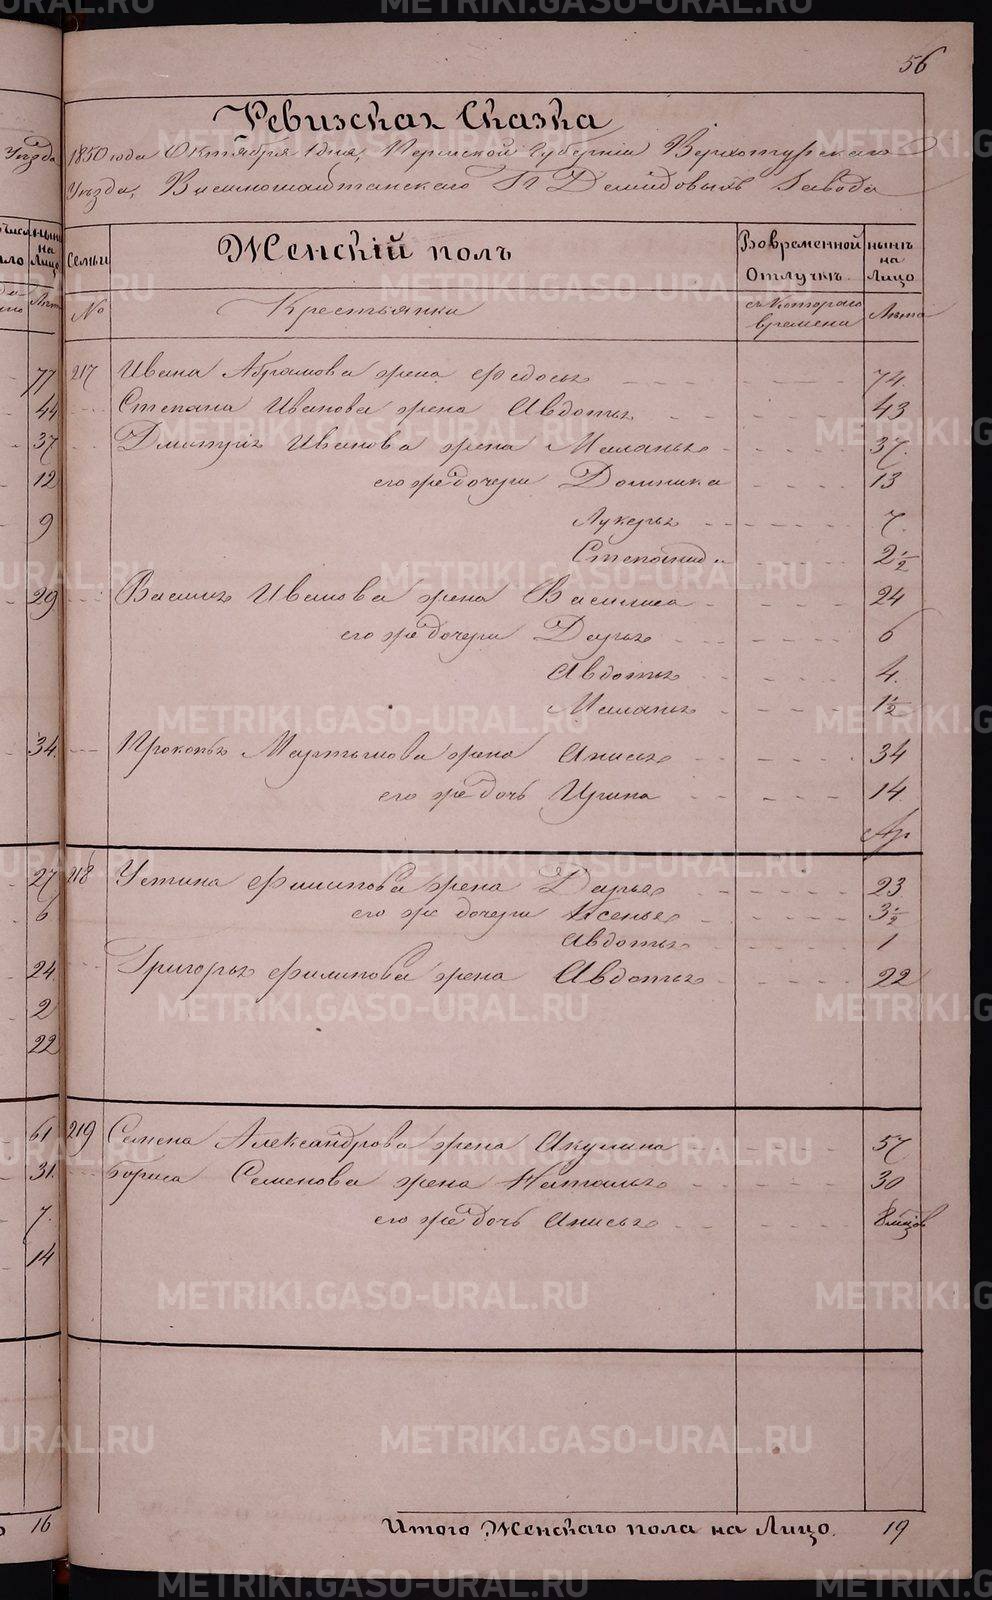 56
Ревизская Сказка
1850 года Октября 1 дня, Пермской Губернiи Верхотурскаго
Уезда, Висимошайтанскаго Гг Демидовыхъ Завода
Семьи
Женскiй полъ
Вовременной Отлучкѣ
нынѣ на Лицо
№
Крестьянки
съ котораго времени
Лѣта
217 Ивана Абрамова жена Федосья 74.
Степана Иванова жена Авдотья 43
Дмитрiя Иванова жена Маланья 37.
его же дочери Домника 13
Лукерья 7.
Степанида 2 1/2
Василья Иванова жена Василиса 24
его же дочери Дарья 6
Авдотья 4.
Маланья 1 1/2
Прокопья Мартынова жена Анисья 34
его же дочь Ирина 14
218 Устина Филипова жена Дарья 23
его же дочери Ксенья 3 1/2
Авдотья 1
Григорья Филипова жена Авдотья 22
219 Семена Александрова жена Акулина 57
Бориса Семенова жена Наталья 30
его же дочь Анисья 8 мѣсяцов
Итого Женскаго пола на Лицо. 19
Уѣзда
нынѣ
на
Лицо
77
44
37
12
9
29
34.
27
6
24
2
22
61
31.
7.
14
16
METRIKI.GASO-URAL.RU